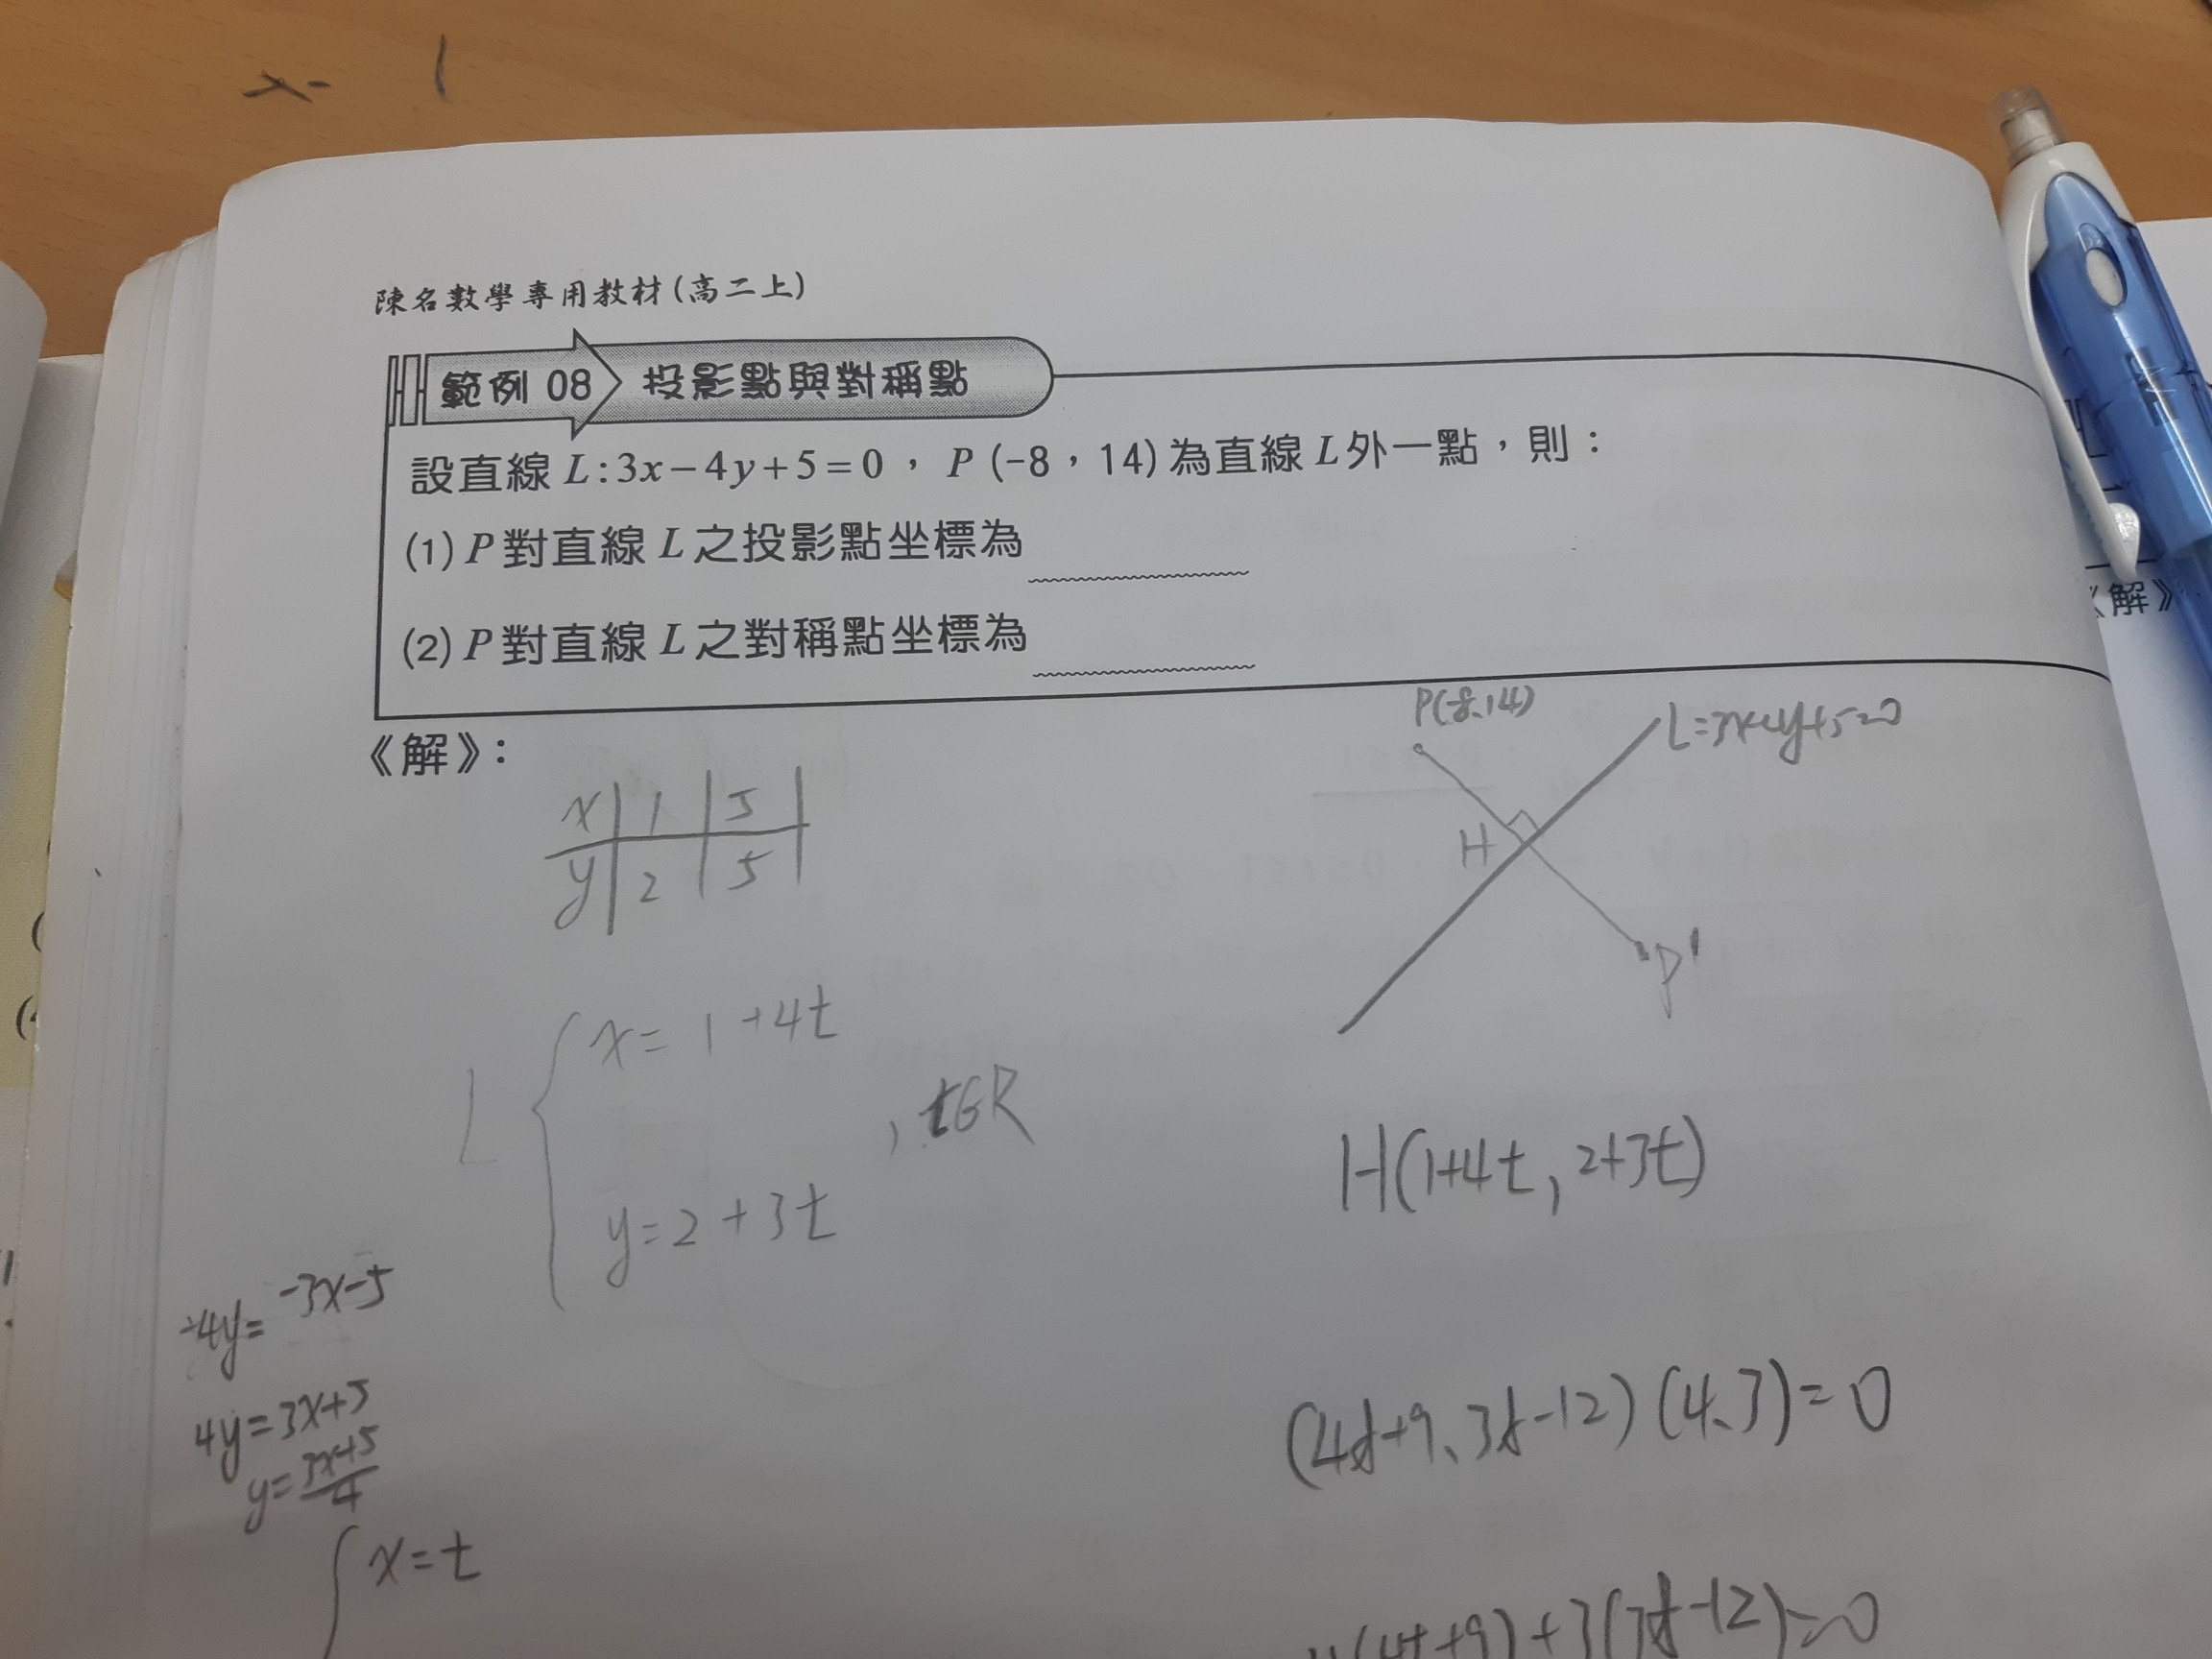 x- 1
陳名數學專用教材(高二上)
範例 08 投影點與對稱點
設直線 L:3x-4y+5=0，P (-8，14)為直線 L 外一點，則：
(1) P 對直線 L 之投影點坐標為
(2) P 對直線 L 之對稱點坐標為
《解》：
x | 1 | 5 |
y | 2 | 5 |
P(-8、14)
L=3x-4y+5=0
H
P'
L { x= 1+4t
y=2+3t
, t∈R
H(1+4t, 2+3t)
-4y= -3x-5
4y=3x+5
y= 3x+5/4
x=t
(4t+9、3t-12)(4、3)=0
4(4t+9)+3(3t-12)=0
《解》